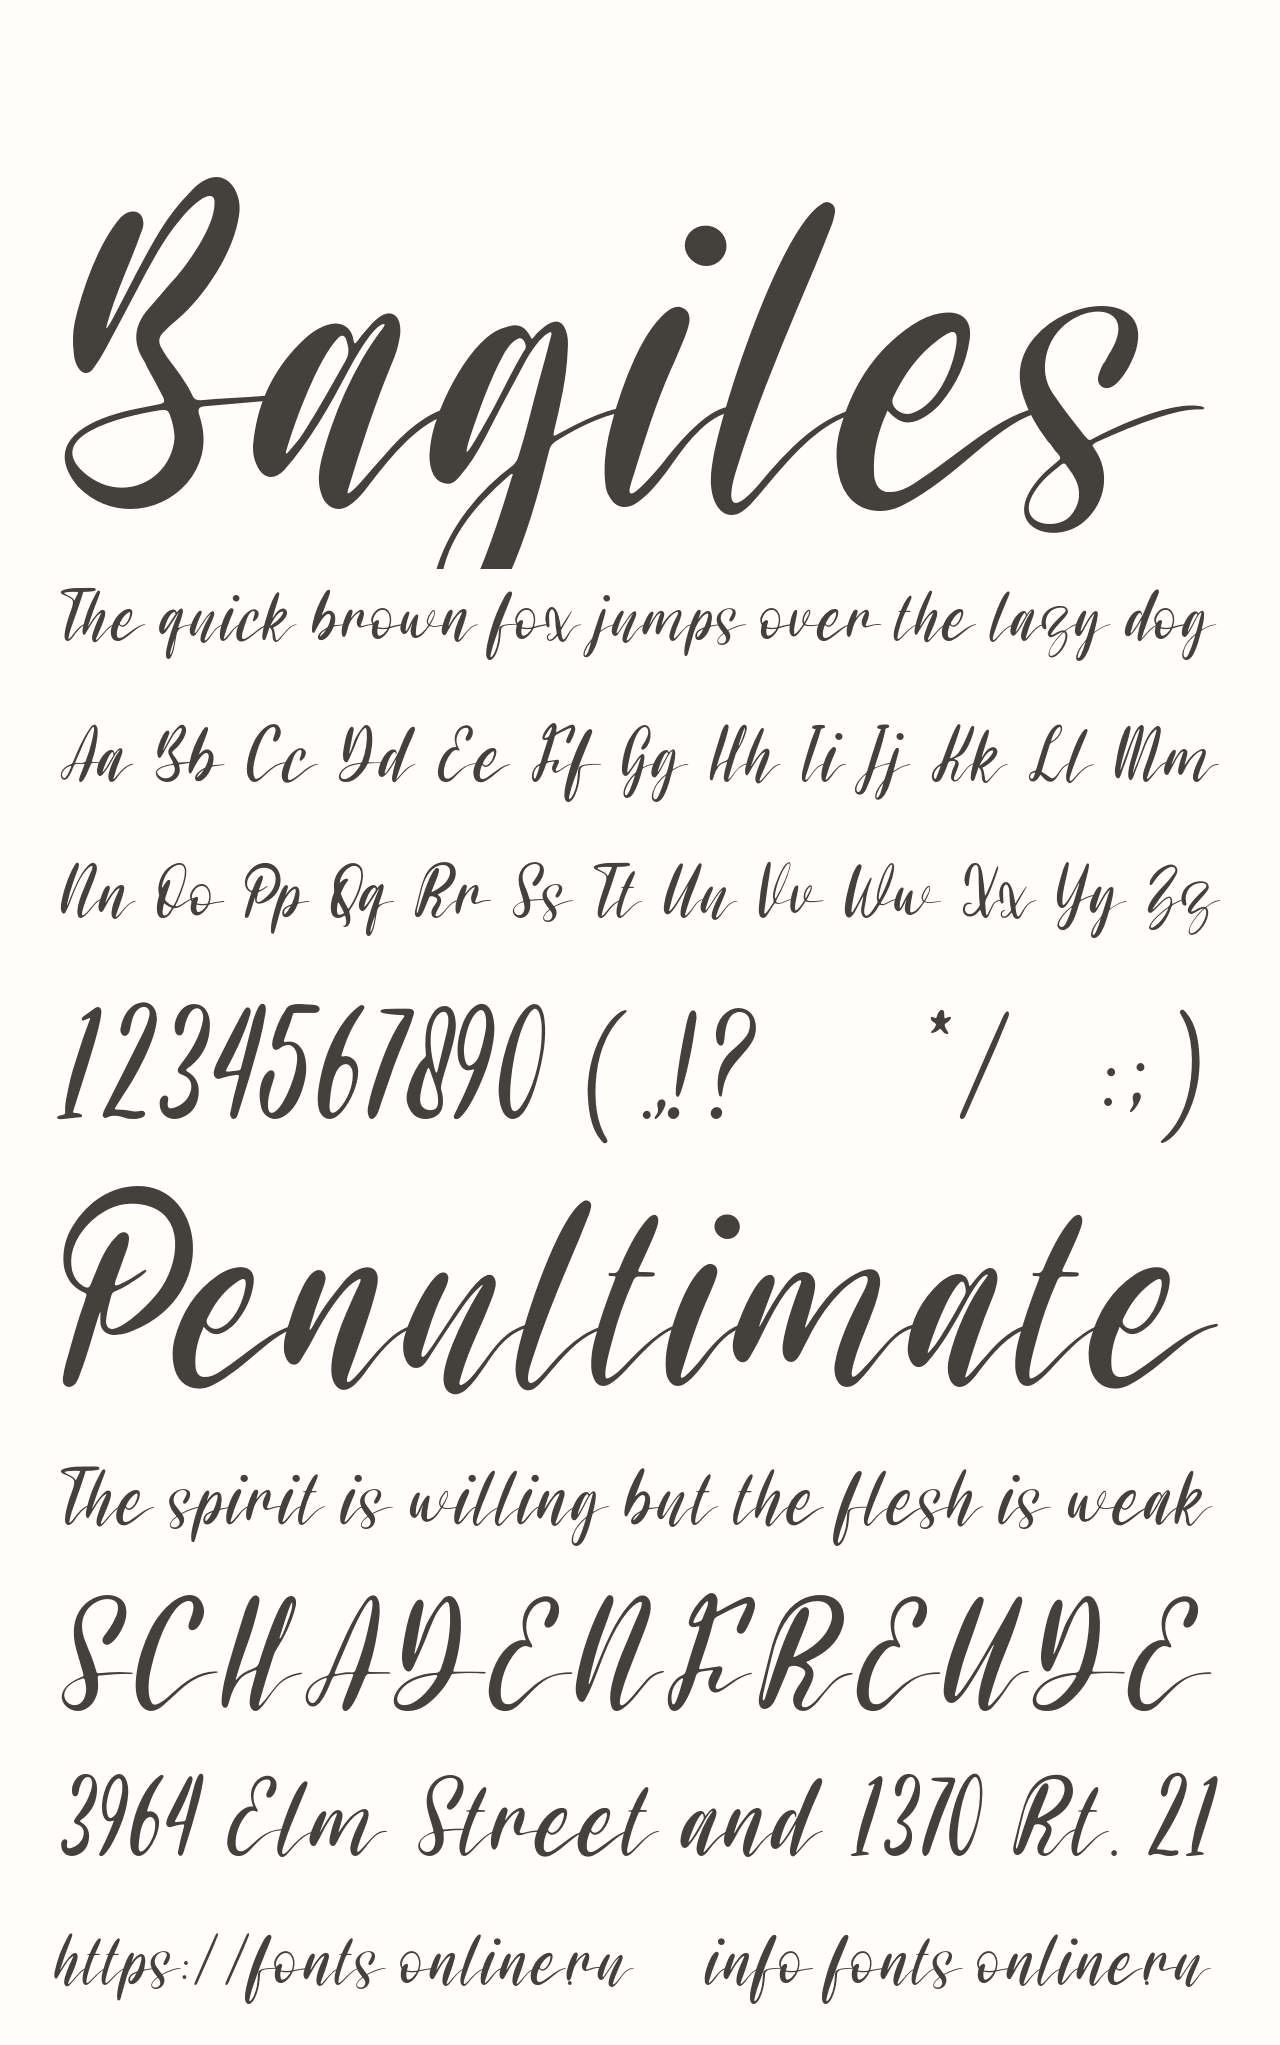 Bagiles
The quick brown fox jumps over the lazy dog
Aa Bb Cc Dd Ee Ff Gg Hh Ii Jj Kk Ll Mm
Nn Oo Pp Qq Rr Ss Tt Uu Vv Ww Xx Yy Zz
1234567890 (.,!? */ :;)
Penultimate
The spirit is willing but the flesh is weak
SCHADENFREUDE
3964 Elm Street and 1370 Rt. 21
https://fonts online.ru info fonts online.ru